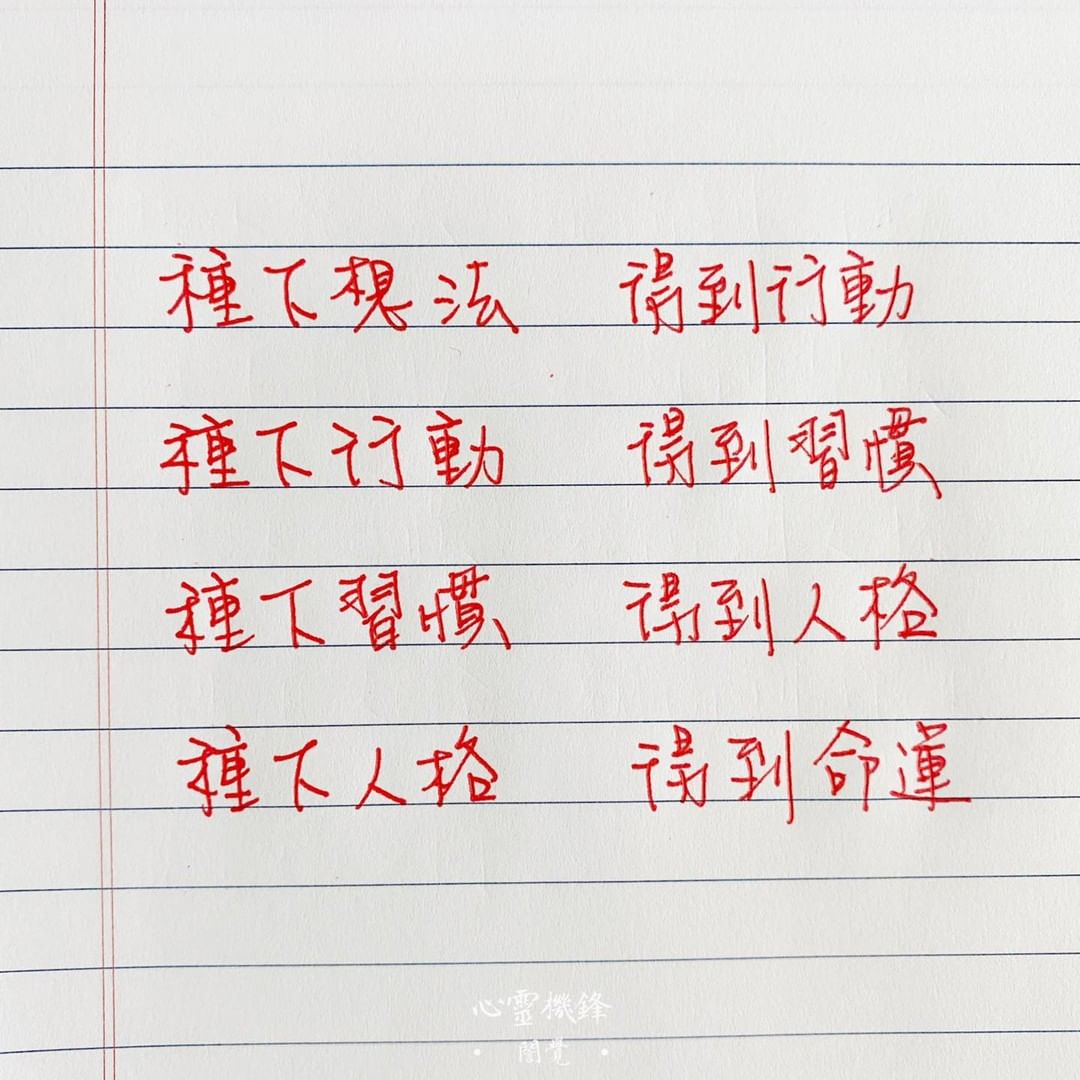 種下想法 得到行動
種下行動 得到習慣
種下習慣 得到人格
種下人格 得到命運
心靈機鋒
· 闇覺 ·